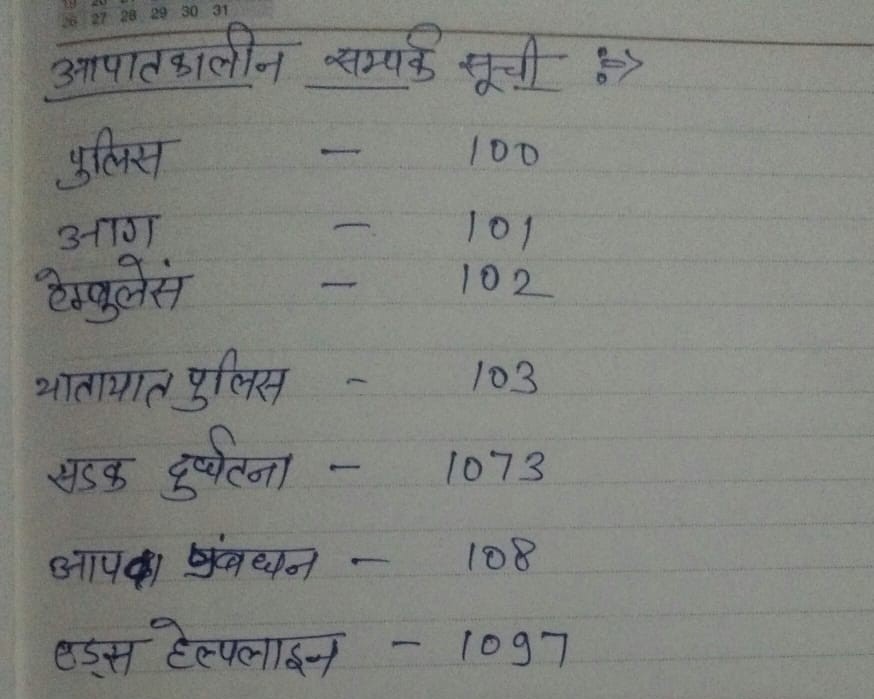 26 27 28 29 30 31
आपातकालीन सम्पर्क सूची :=>
पुलिस - 100
आग - 101
ऐम्बुलेंस - 102
यातायात पुलिस - 103
सडक दुर्घटना - 1073
आपदा प्रंबधन - 108
एड्स हेल्पलाइन - 1097